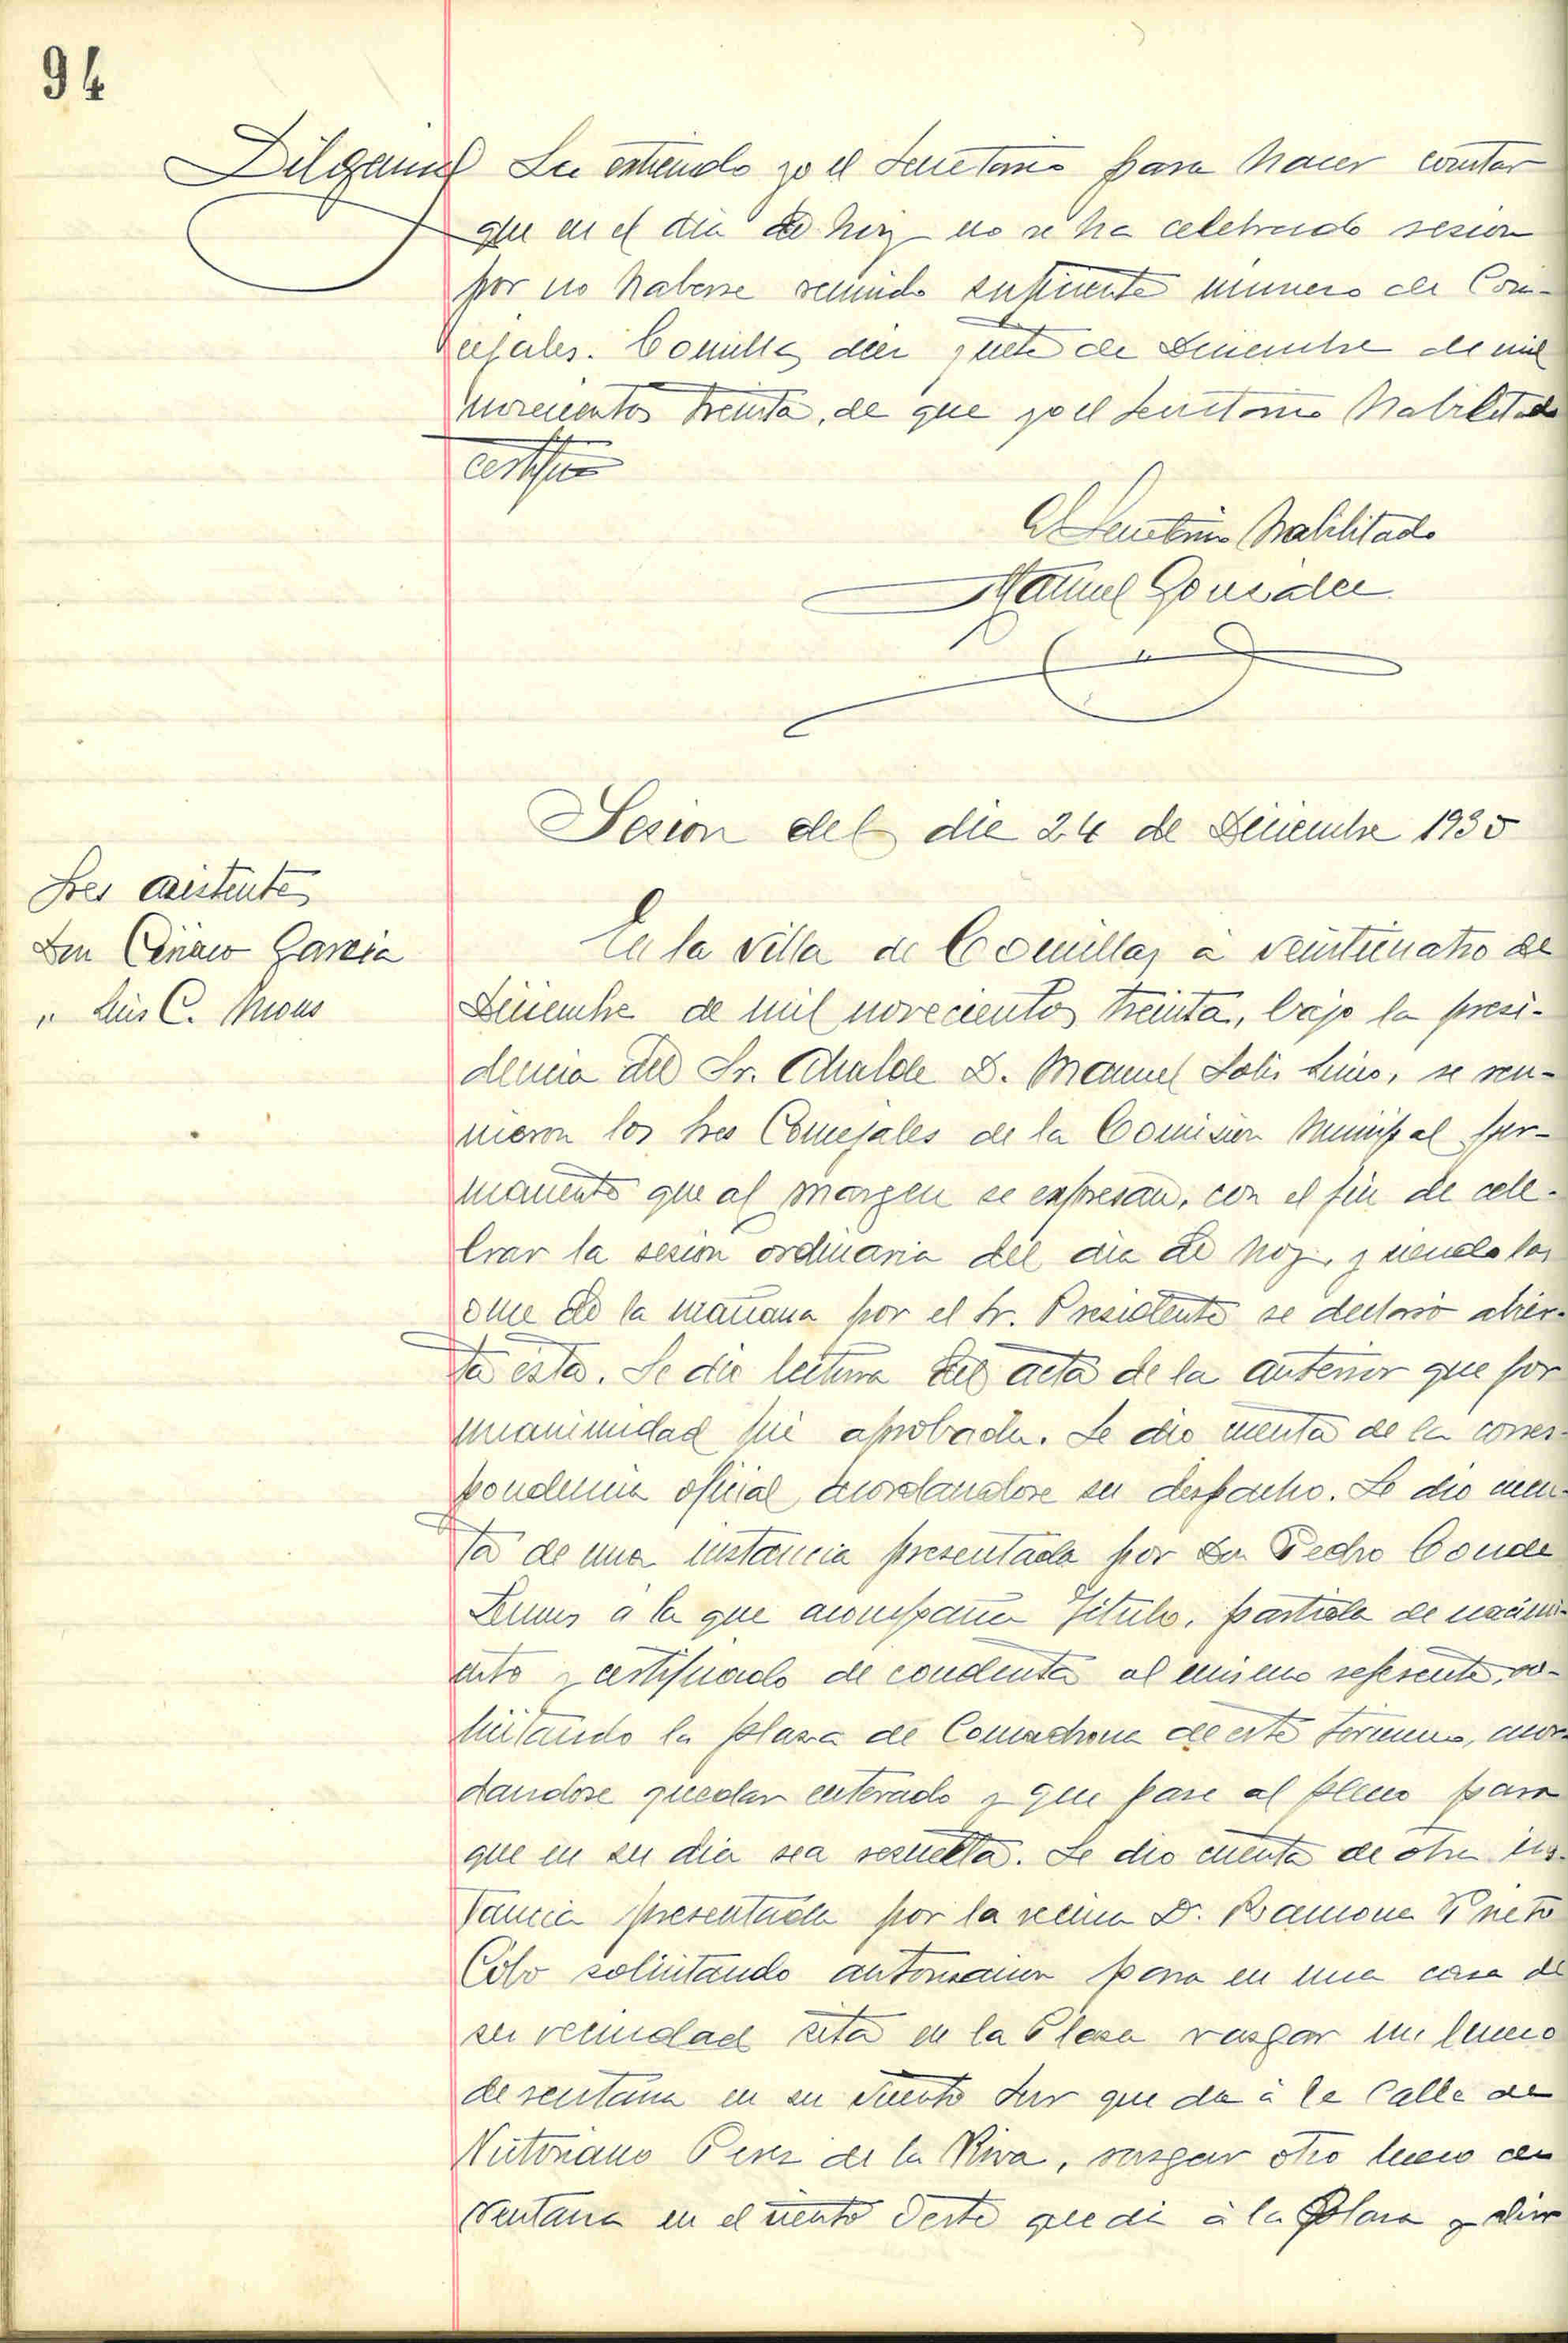 94
Diligencia La extiendo yo el Secretario para hacer constar
que en el dia de hoy no se ha celebrado sesion
por no haberse reunido suficiente numero de Con-
cejales. Comillas diez y siete de Diciembre de mil
novecientos treinta, de que yo el Secretario habilitado
certifico
El Secretario habilitado
Manuel Gonzalez
Sesion del dia 24 de Diciembre 1930
Sres asistentes
Don Genaro Garcia
" Luis C.
En la villa de Comillas a veinticuatro de
Diciembre de mil novecientos treinta, bajo la presi-
dencia del Sr. Alcalde D. Manuel Solis, se reu-
nieron los Sres Concejales de la Comision Municipal per-
manente que al margen se expresan, con el fin de cele-
brar la sesion ordinaria del dia de hoy, y siendo las
once de la mañana por el Sr. Presidente se declaró abier-
ta esta. Se dio lectura del acta de la anterior que por
unanimidad fué aprobada. Se dio cuenta de la corres-
pondencia oficial acordandose su despacho. Se dio cuen-
ta de una instancia presentada por Don Pedro Conde
a la que acompaña titulo, partida de nacimi-
ento y certificado de conducta al mismo referente, so-
licitando la plaza de Comadrona de este termino, acor-
dandose quedar enterado y que pase al pleno para
que en su dia sea resuelta. Se dio cuenta de otra ins-
tancia presentada por la vecina Dª. Ramona Prieto
Cobo solicitando autorizacion para en una casa de
su vecindad sita en la Plaza rasgar un hueco
de ventana en su viento Sur que da á la Calle de
Victoriano Perez de la Riva, rasgar otro hueco de
ventana en el viento Oeste que dá á la Plaza y abrir